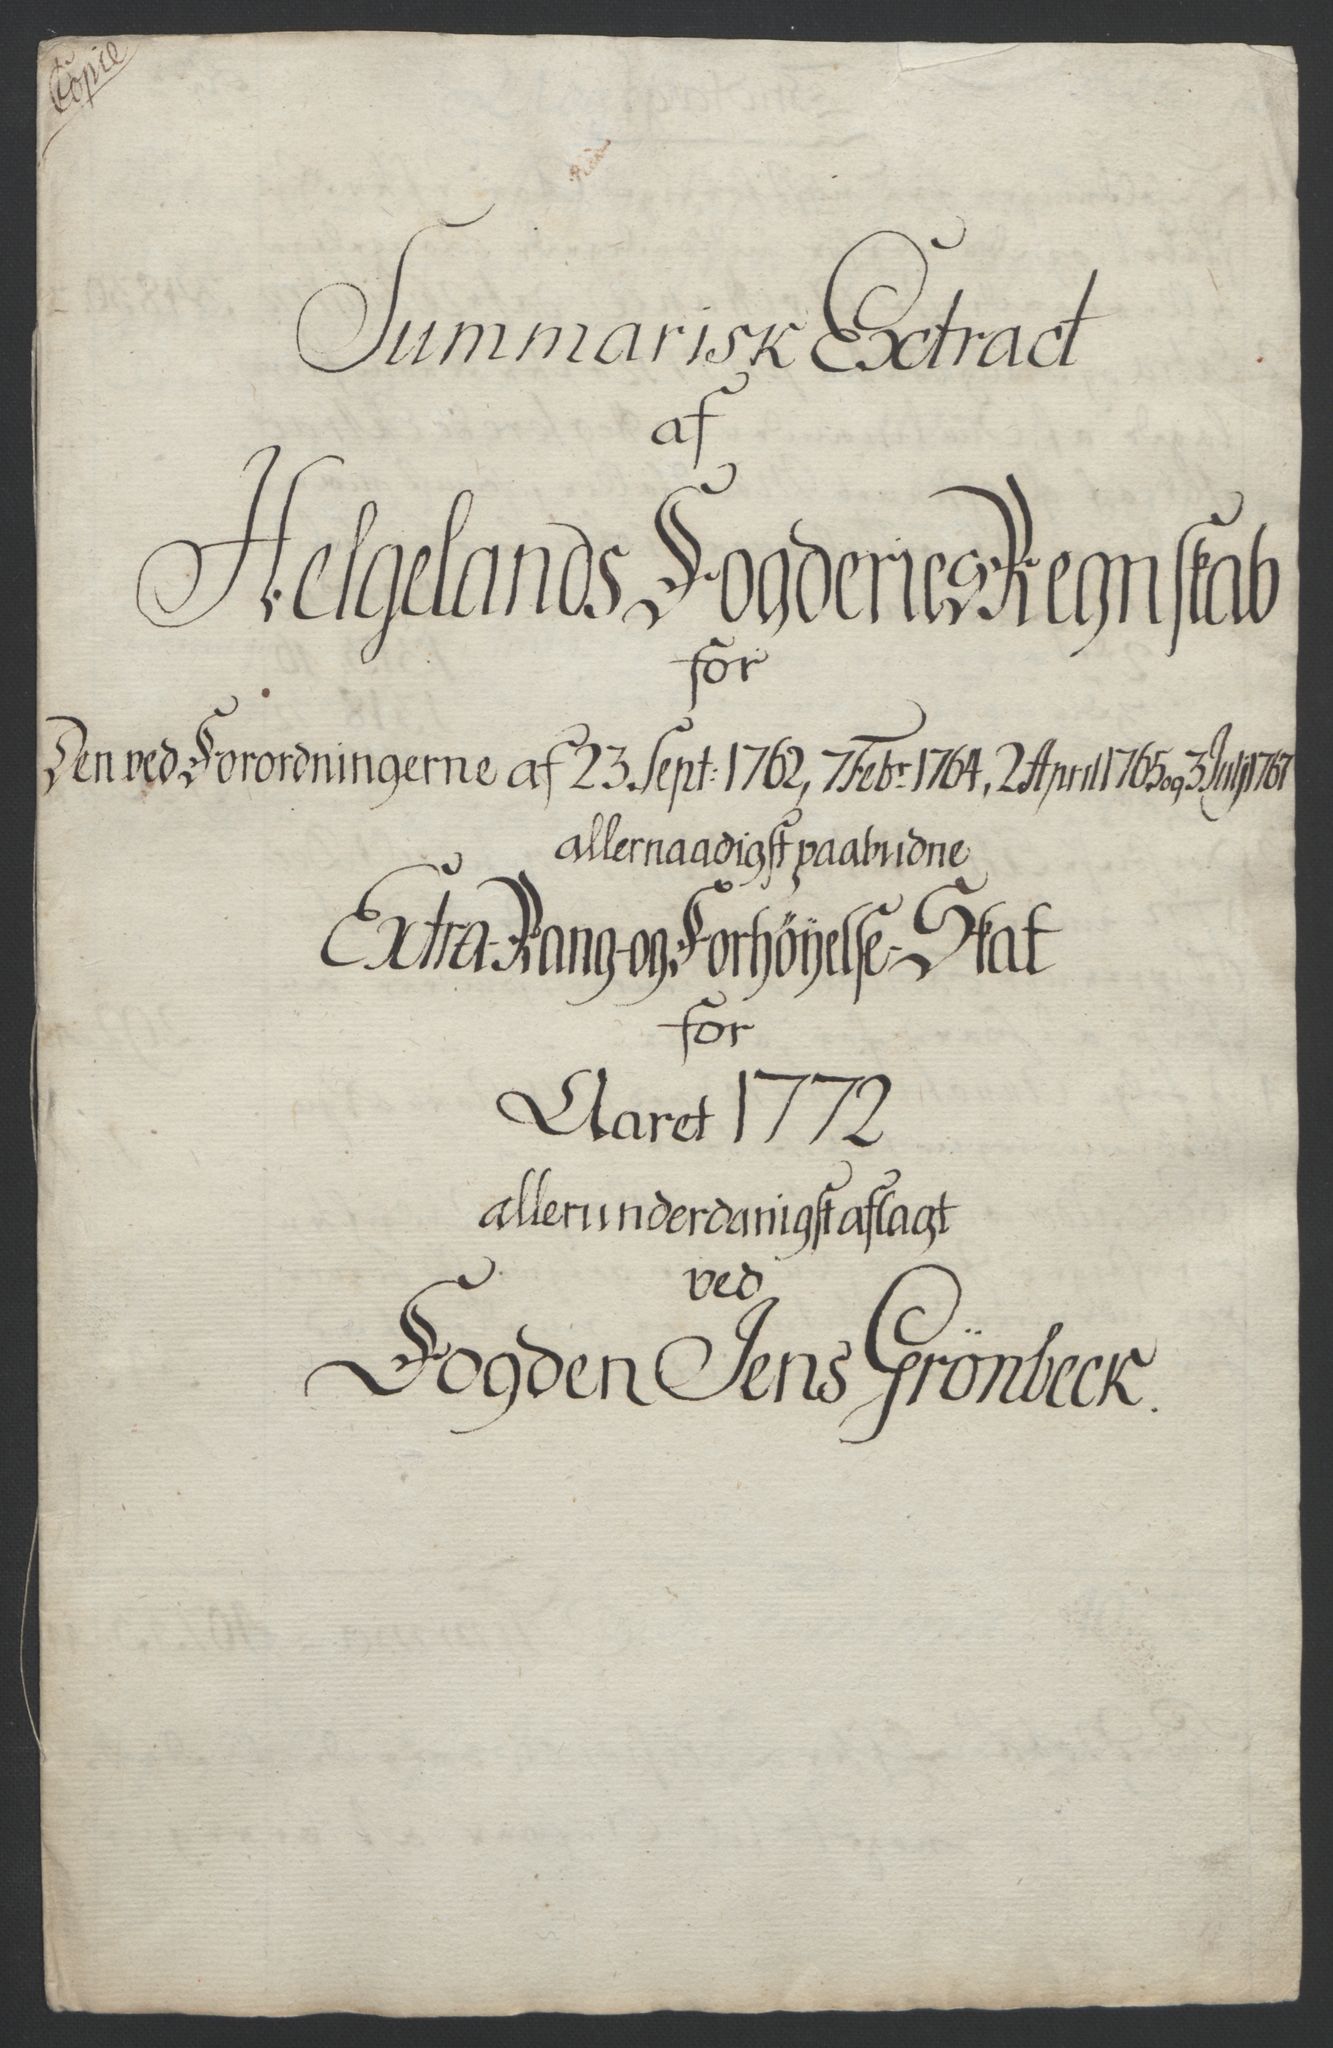 Copie
Summarisk Extract
af
Helgelands Fogderies Regnskab
for
Den ved Forordningerne af 23 Sept: 1762, 7 Febr 1764, 2 April 1765 og 3 Julij 1767
allernaadigst paabudne
Extra- Rang- og Forhöyelse- Skat
for
Aaret 1772
allerunderdanigst aflagt
ved
Fogden Jens Grönbeck.